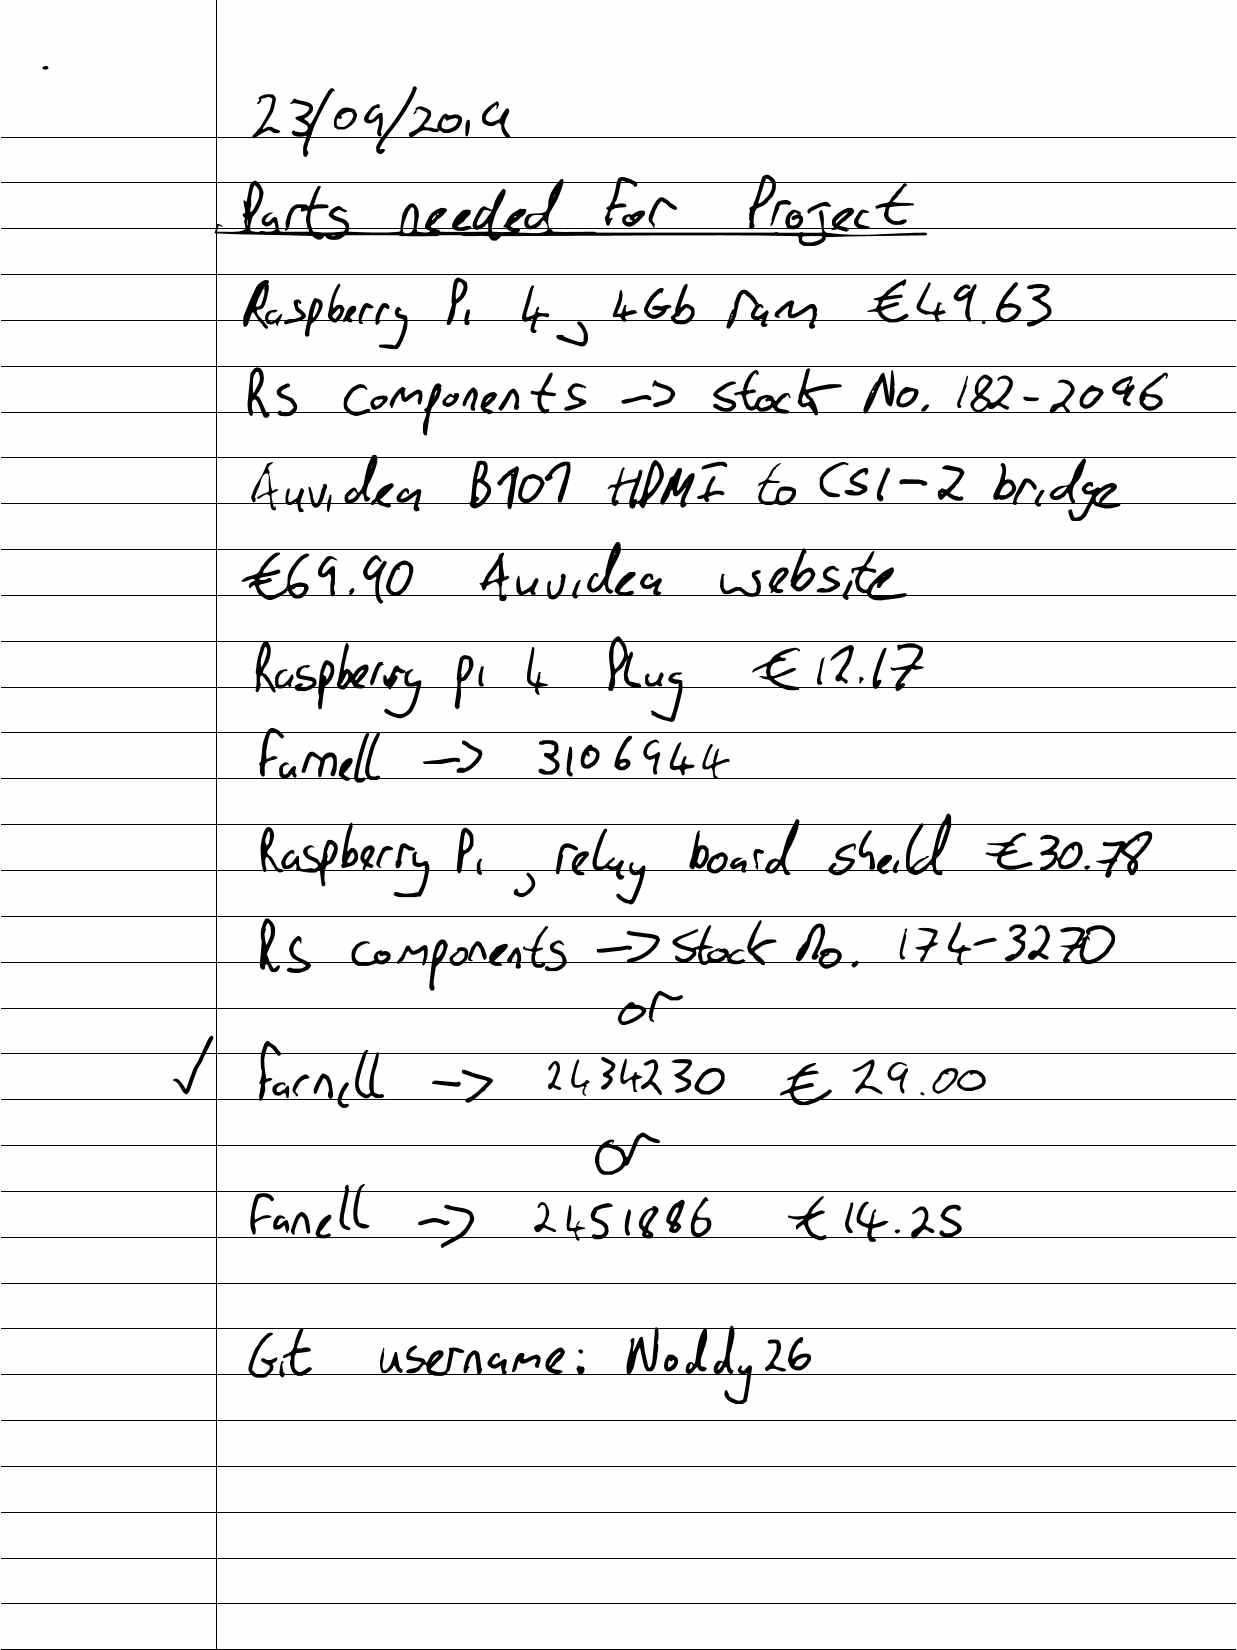 23/09/2019
Parts needed for Project
Raspberry Pi 4, 4Gb ram €49.63
RS components -> stock No. 182-2096
Auvidea B101 HDMI to CSI-2 bridge
€69.90 Auvidea website
Raspberry pi 4 Plug €12.17
Farnell -> 3106944
Raspberry Pi, relay board sheild €30.78
RS components -> Stock No. 174-3270
or
✓ Farnell -> 2434230 € 29.00
or
Fanell -> 2451886 €14.25
Git username: Noddy26